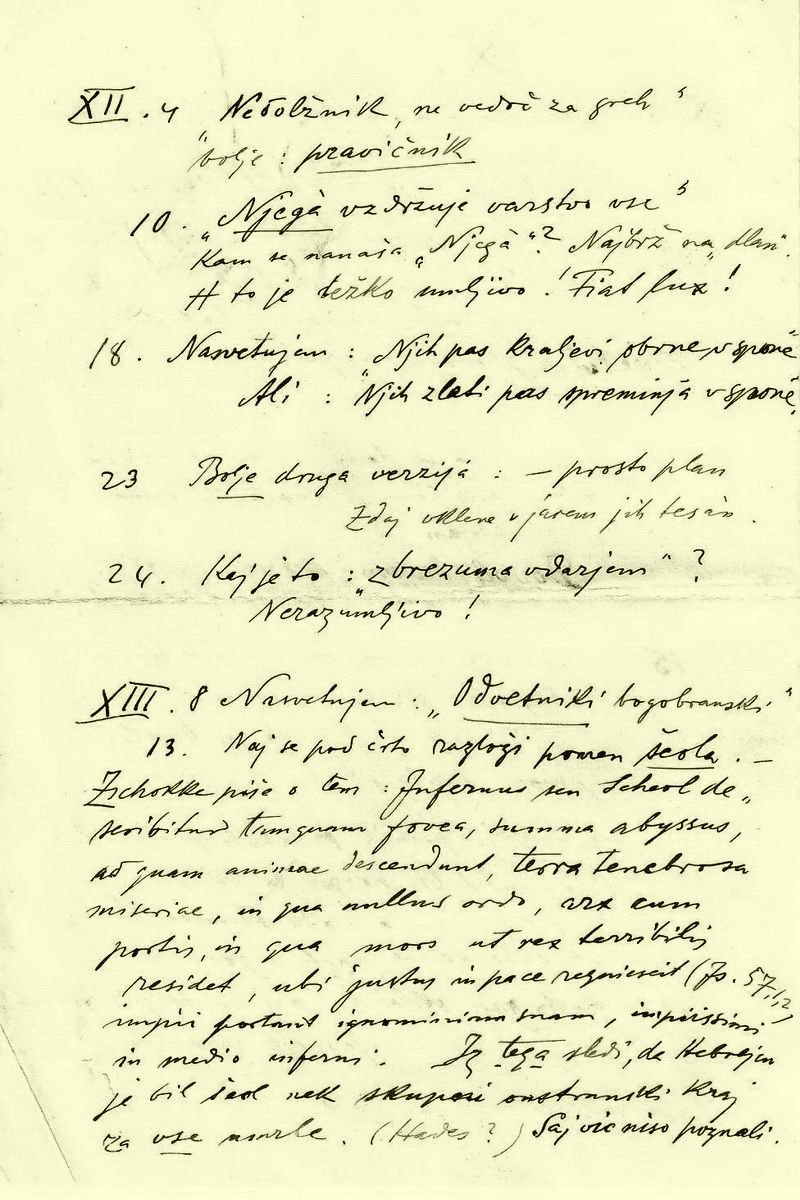 XII. 4 Nedolžnik, ne vedoč za greh"
"bolje: pravičnik
10. „Njegà vzdržuje varstvo vse"
Kam se nanaša „Njegà"? Najbrž na „dlan".
# to je težko umljivo! Fiat lux!
18. Nasvetujem: „Njih pas kraljevi obrne v sponè
Ali: "Njih zlati pas spreminja v sponè,
23 Bolje druga verzija: – prosto plan
Zdaj vklene v jarem jih tesàn.
24. Kaj je to: „zbrezuma vdarjem"?
Nerazumljivo!
XIII. 8 Nasvetujem: „Odvetniki bogobranski"
13. Naj se pod črto razloži pomen šeola. –
Zschokke piše o tem: Infernus seu Scheol de„
scribitur tamquam fovea, summa abyssus,
ad quam animae descendunt, terra tenebrosa
miseriae, in qua nullus ordo, arx cum
portis, in qua mors ut rex terribilis
residet, ubi justus in pace requiescit (Js. 57,1,2)
impii portant ignominiam suam, impiissimi
in medio inferni. Iz tega sledi, da Hebrejem
je bil šeol nek skupni onstranski kraj
za vse umrle. (Hades?) Saj vic niso poznali.